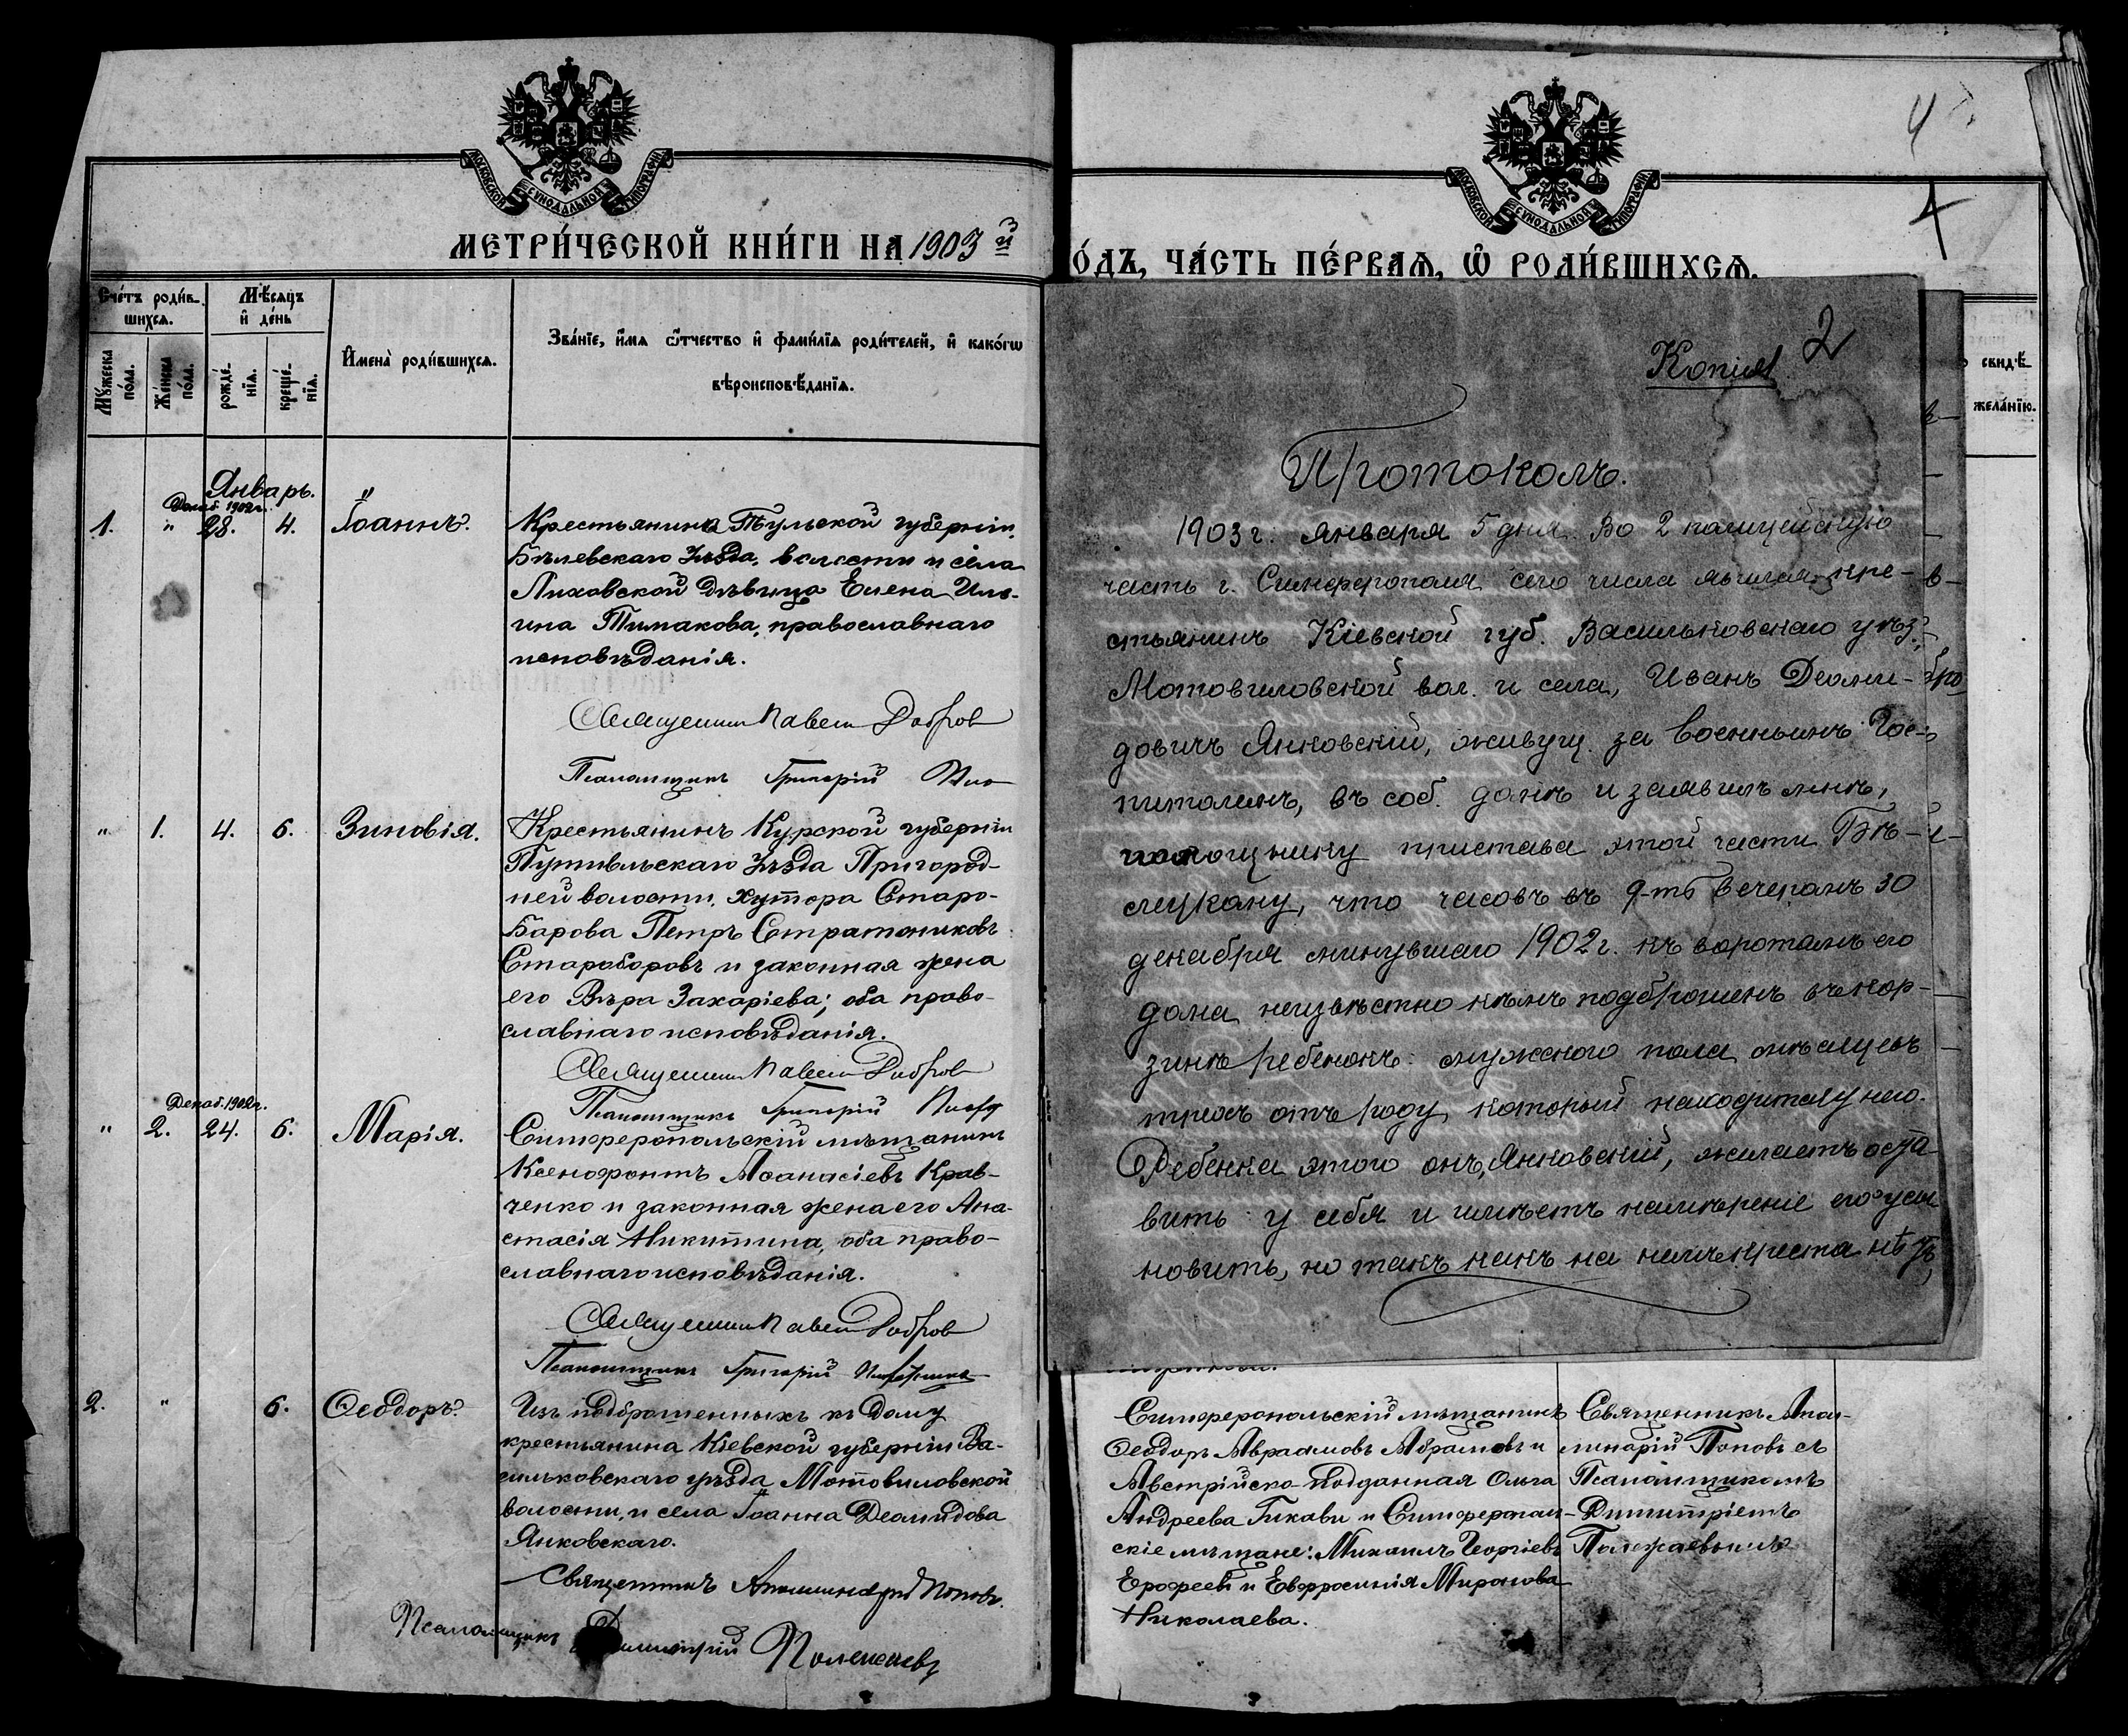 МОСКОВСКОЙ СѴНОДАЛЬНОЙ ТИПОГРАФІИ
МЕТРИ́ЧЕСКОЙ КНИ́ГИ НА 1903 й
Счéтъ роди́в-
шихся.
Мѣ́сяцъ
и҆ дéнь
Мꙋ́жеска
пóла.
Жéнска
пóла.
рождé-
нїя.
крещé-
нїя.
И҆мена̀ роди́вшихся.
Звáнїе, и҆́мя ѻ҆́тчество и҆ фами́лїя роди́телей, и҆ какóгѡ
вѣроисповѣ́данїя.
Январь.
Декаб. 1902г.
1. " 28. 4. Іоаннъ.
Крестьянина Тульской губерніи,
Бѣлевскаго уѣзда, волости и села
Лиховской дѣвица Елена Иль-
ина Тимакова, православнаго
исповѣданія.
Священникъ Павелъ Добров
Псаломщикъ Григорій
" 1. 4. 6. Зиновія.
Крестьянинъ Курской губерніи
Путивльскаго уѣзда Пригород-
ней волости, хутора Старо-
Барова Петръ Стратониковъ
Староборовъ и законная жена
его Вѣра Захаріева; оба право-
славнаго исповѣданія.
Священникъ Павелъ Добров
Псаломщикъ Григорій
Декаб. 1902г.
" 2. 24. 6. Марія.
Симферопольскій мѣщанинъ
Ксенофонтъ Аѳанасіевъ Крав-
ченко и законная жена его Ана-
стасія Никитина, оба право-
славнаго исповѣданія.
Священникъ Павелъ Добров
Псаломщикъ Григорій
2. " 6. Ѳеодоръ.
Изъ подброшенныхъ къ дому
крестьянина Кіевской губерніи Ва-
сильковскаго уѣзда Мотовиловской
волости, и села Іоанна Деомидова
Янковскаго.
Священникъ Аполлинарій Поповъ.
Псаломщикъ Димитрій Полежаевъ
4
4
МОСКОВСКОЙ СѴНОДАЛЬНОЙ ТИПОГРАФІИ
ÓДЪ, ЧÁСТЬ ПÉРВАЯ, Ѡ҆ РОДИ́ВШИХСЯ.
свидѣ-
желáнїю.
Копія 2
Протоколъ.
1903 г. января 5 дня. Во 2 полицейскую
часть г. Симферополя сего числа явился кре-
стьянинъ Кіевской губ. Васильковскаго уѣз.
Мотовиловской вол. и села, Иванъ Деоми-
довичъ Янковскій, живущ. за Военнымъ Гос-
питалемъ, въ соб. домѣ и заявилъ мнѣ,
помощнику пристава этой части Бѣ-
, что часовъ въ 9-ть вечеромъ 30
декабря минувшаго 1902 г. къ воротамъ его
дома неизвѣстно кѣмъ подброшенъ въ кор-
зинѣ ребенокъ мужского пола мѣсяцевъ
трехъ отъ роду, который находится у него.
Ребенка этого онъ, Янковскій, желаетъ оста-
вить у себя и имѣетъ намѣреніе его усы
новить, но такъ какъ на немъ креста нѣтъ,
Симферопольскій мѣщанинъ
Ѳеодоръ Авраамовъ Абрамовъ и
Австрійско-подданная Ольга
Андреева Гикави и Симферополь-
скіе мѣщане: Михаилъ Георгіевъ
Ерофеевъ и Евфросинія Миронова
Николаева.
Священникъ Апол-
линарій Поповъ съ
Псаломщикомъ
Димитріемъ
Полежаевымъ